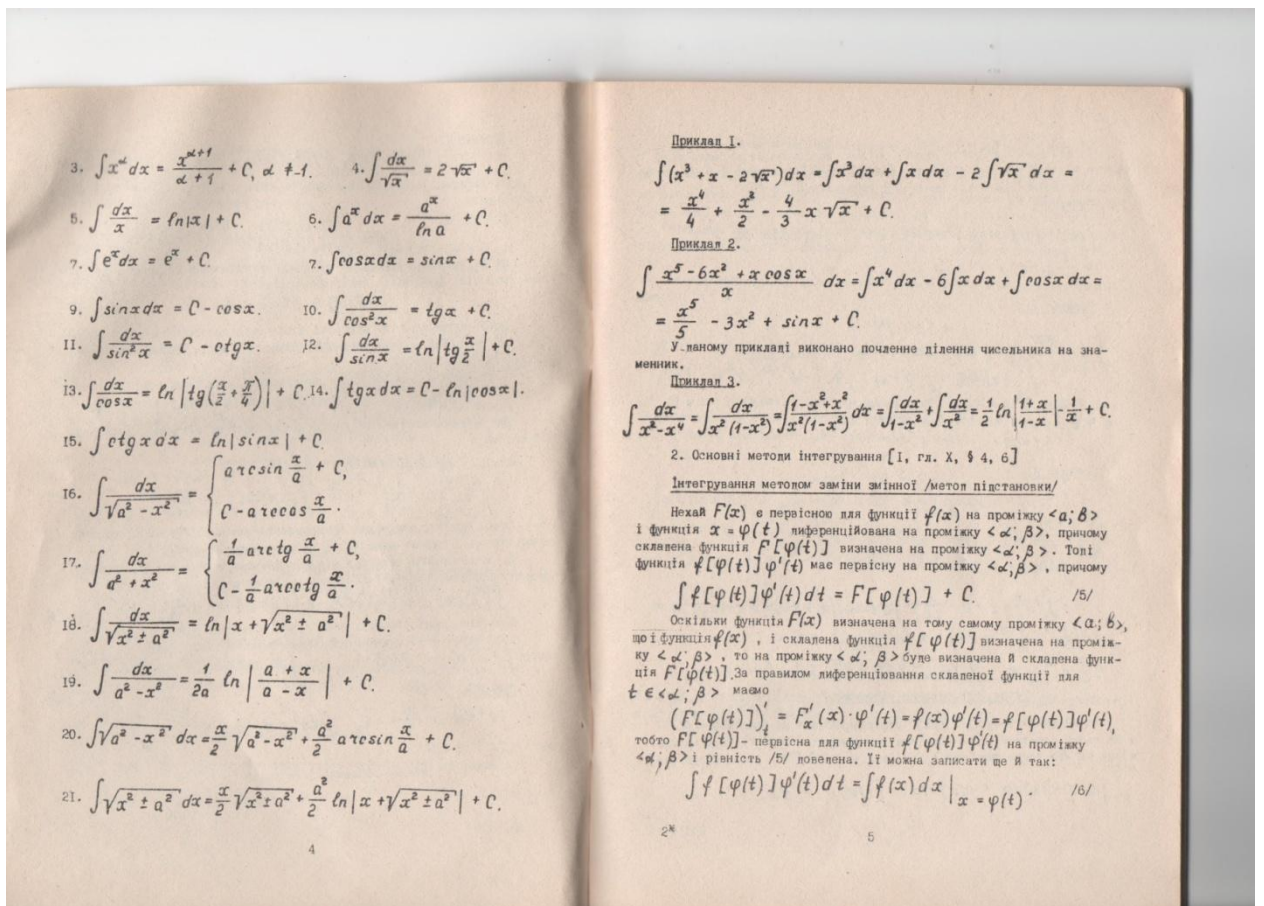 3. ∫x^α dx = x^(α+1)/(α+1) + C, α ≠ -1. 4. ∫dx/√x = 2√x + C.
5. ∫dx/x = ln|x| + C. 6. ∫a^x dx = a^x/ln a + C.
7. ∫e^x dx = e^x + C. 7. ∫cosxdx = sinx + C.
9. ∫sinxdx = C - cosx. 10. ∫dx/cos²x = tgx + C.
11. ∫dx/sin²x = C - ctgx. 12. ∫dx/sinx = ln|tg x/2| + C.
13. ∫dx/cosx = ln|tg(x/2 + π/4)| + C. 14. ∫tgxdx = C - ln|cosx|.
15. ∫ctgxdx = ln|sinx| + C.
16. ∫dx/√(a² - x²) = { arcsin x/a + C,
C - arccos x/a.
17. ∫dx/(a² + x²) = { 1/a arctg x/a + C,
C - 1/a arcctg x/a.
18. ∫dx/√(x² ± a²) = ln|x + √(x² ± a²)| + C.
19. ∫dx/(a² - x²) = 1/2a ln|(a + x)/(a - x)| + C.
20. ∫√(a² - x²) dx = x/2 √(a² - x²) + a²/2 arcsin x/a + C.
21. ∫√(x² ± a²) dx = x/2 √(x² ± a²) + a²/2 ln|x + √(x² ± a²)| + C.
4
Приклад 1.
∫(x³ + x - 2√x)dx = ∫x³dx + ∫x dx - 2∫√x dx =
= x⁴/4 + x²/2 - 4/3 x√x + C.
Приклад 2.
∫(x⁵ - 6x² + x cosx)/x dx = ∫x⁴dx - 6∫xdx + ∫cosxdx =
= x⁵/5 - 3x² + sinx + C.
У даному прикладі виконано почленне ділення чисельника на зна-
менник.
Приклад 3.
∫dx/(x²-x⁴) = ∫dx/(x²(1-x²)) = ∫(1-x²+x²)/(x²(1-x²)) dx = ∫dx/(1-x²) + ∫dx/x² = 1/2 ln|(1+x)/(1-x)| - 1/x + C.
2. Основні методи інтегрування [1, гл. X, § 4, 6]
Інтегрування методом заміни змінної /метод підстановки/
Нехай F(x) є первісною для функції f(x) на проміжку <a; b>
і функція x = φ(t) диференційована на проміжку <α; β>, причому
складена функція F[φ(t)] визначена на проміжку <α; β>. Тоді
функція f[φ(t)]φ'(t) має первісну на проміжку <α; β>, причому
∫f[φ(t)]φ'(t)dt = F[φ(t)] + C. /5/
Оскільки функція F(x) визначена на тому самому проміжку <a; b>,
що і функція f(x), і складена функція f[φ(t)] визначена на проміж-
ку <α; β>, то на проміжку <α; β> буде визначена й складена функ-
ція F[φ(t)]. За правилом диференціювання складеної функції для
t ∈ <α; β> маємо
(F[φ(t)])'ₜ = F'ₓ(x)·φ'(t) = f(x)φ'(t) = f[φ(t)]φ'(t),
тобто F[φ(t)] - первісна для функції f[φ(t)]φ'(t) на проміжку
<α; β> і рівність /5/ доведена. Її можна записати ще й так:
∫f[φ(t)]φ'(t)dt = ∫f(x)dx|x = φ(t). /6/
2*
5